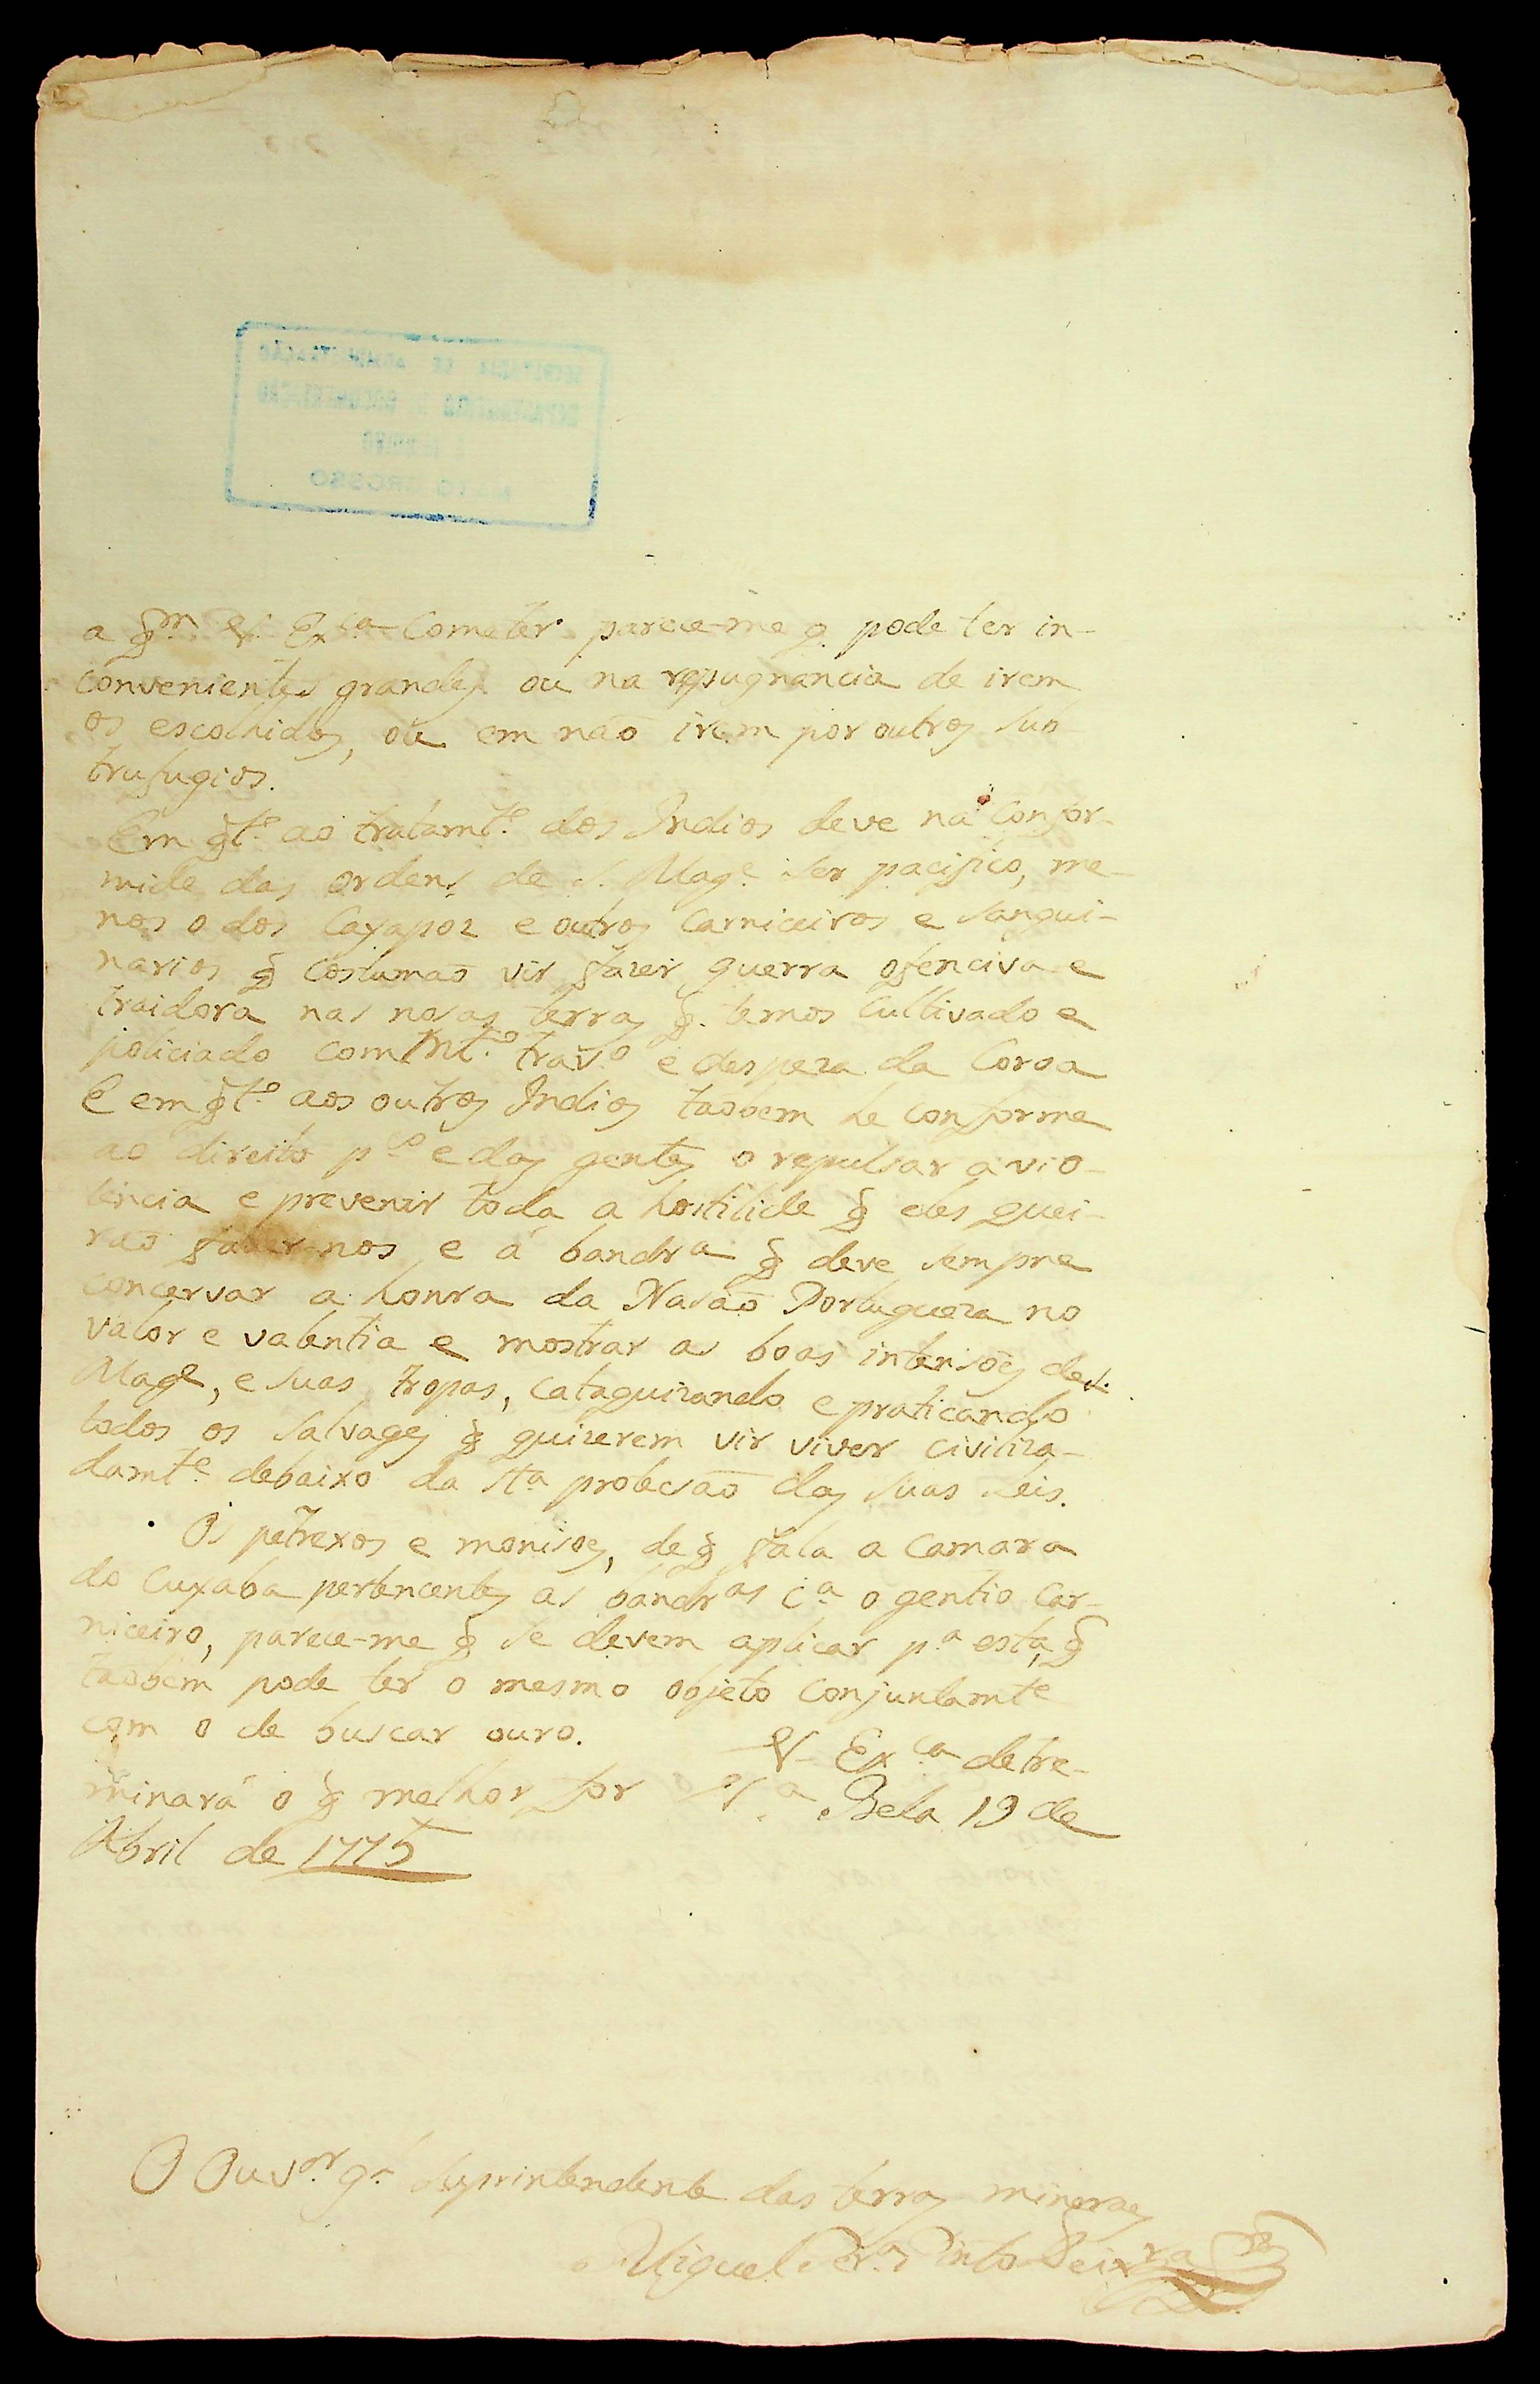 a qm V. Exca Cometer parece-me q pode ter in-
convenientes grandes ou na repugnancia de irem
os escolhidos, ou em não irem por outros sub
trufugios.
Em qto ao tratamto dos Indios deve na Confor-
mide das ordens de S. Mage ser pacifico, me-
nos o dos Cayapoz e outros Carniceiros e sangui-
narios q Costumaõ vir fazer guerra ofenciva e
traidora nas nosas terras q temos Cultivado e
policiado com Mto travo e despeza da Coroa
E em qto aos outros Indios taobem he conforme
ao direito pco e das gentes o repulsar a vio-
lencia e prevenir toda a hostilide q eles quei-
rão fazer-nos e á bandra q deve sempre
concervar a honra da Nasão Portugueza no
valor e valentia e mostrar as boas intensões de S.
Mage, e suas tropas, Cataquizando e praticando
todos os Salvages q quizerem vir viver civiliza-
damte debaixo da Sta protecsão das suas Leis.
Os petrexos e monisoes, de q fala a Camara
do Cuyaba pertencentes as bandras ca o gentio Car-
niceiro, parece-me q se devem aplicar pa esta, q
taobem pode ter o mesmo objeto conjuntamte
com o de buscar ouro.
V. Exca detre-
minará o q melhor for Va Bela 19 de
Abril de 1775
O Ouvor gal Suprintendente das terras mineraes
Miguel Pera Pinto Teixra